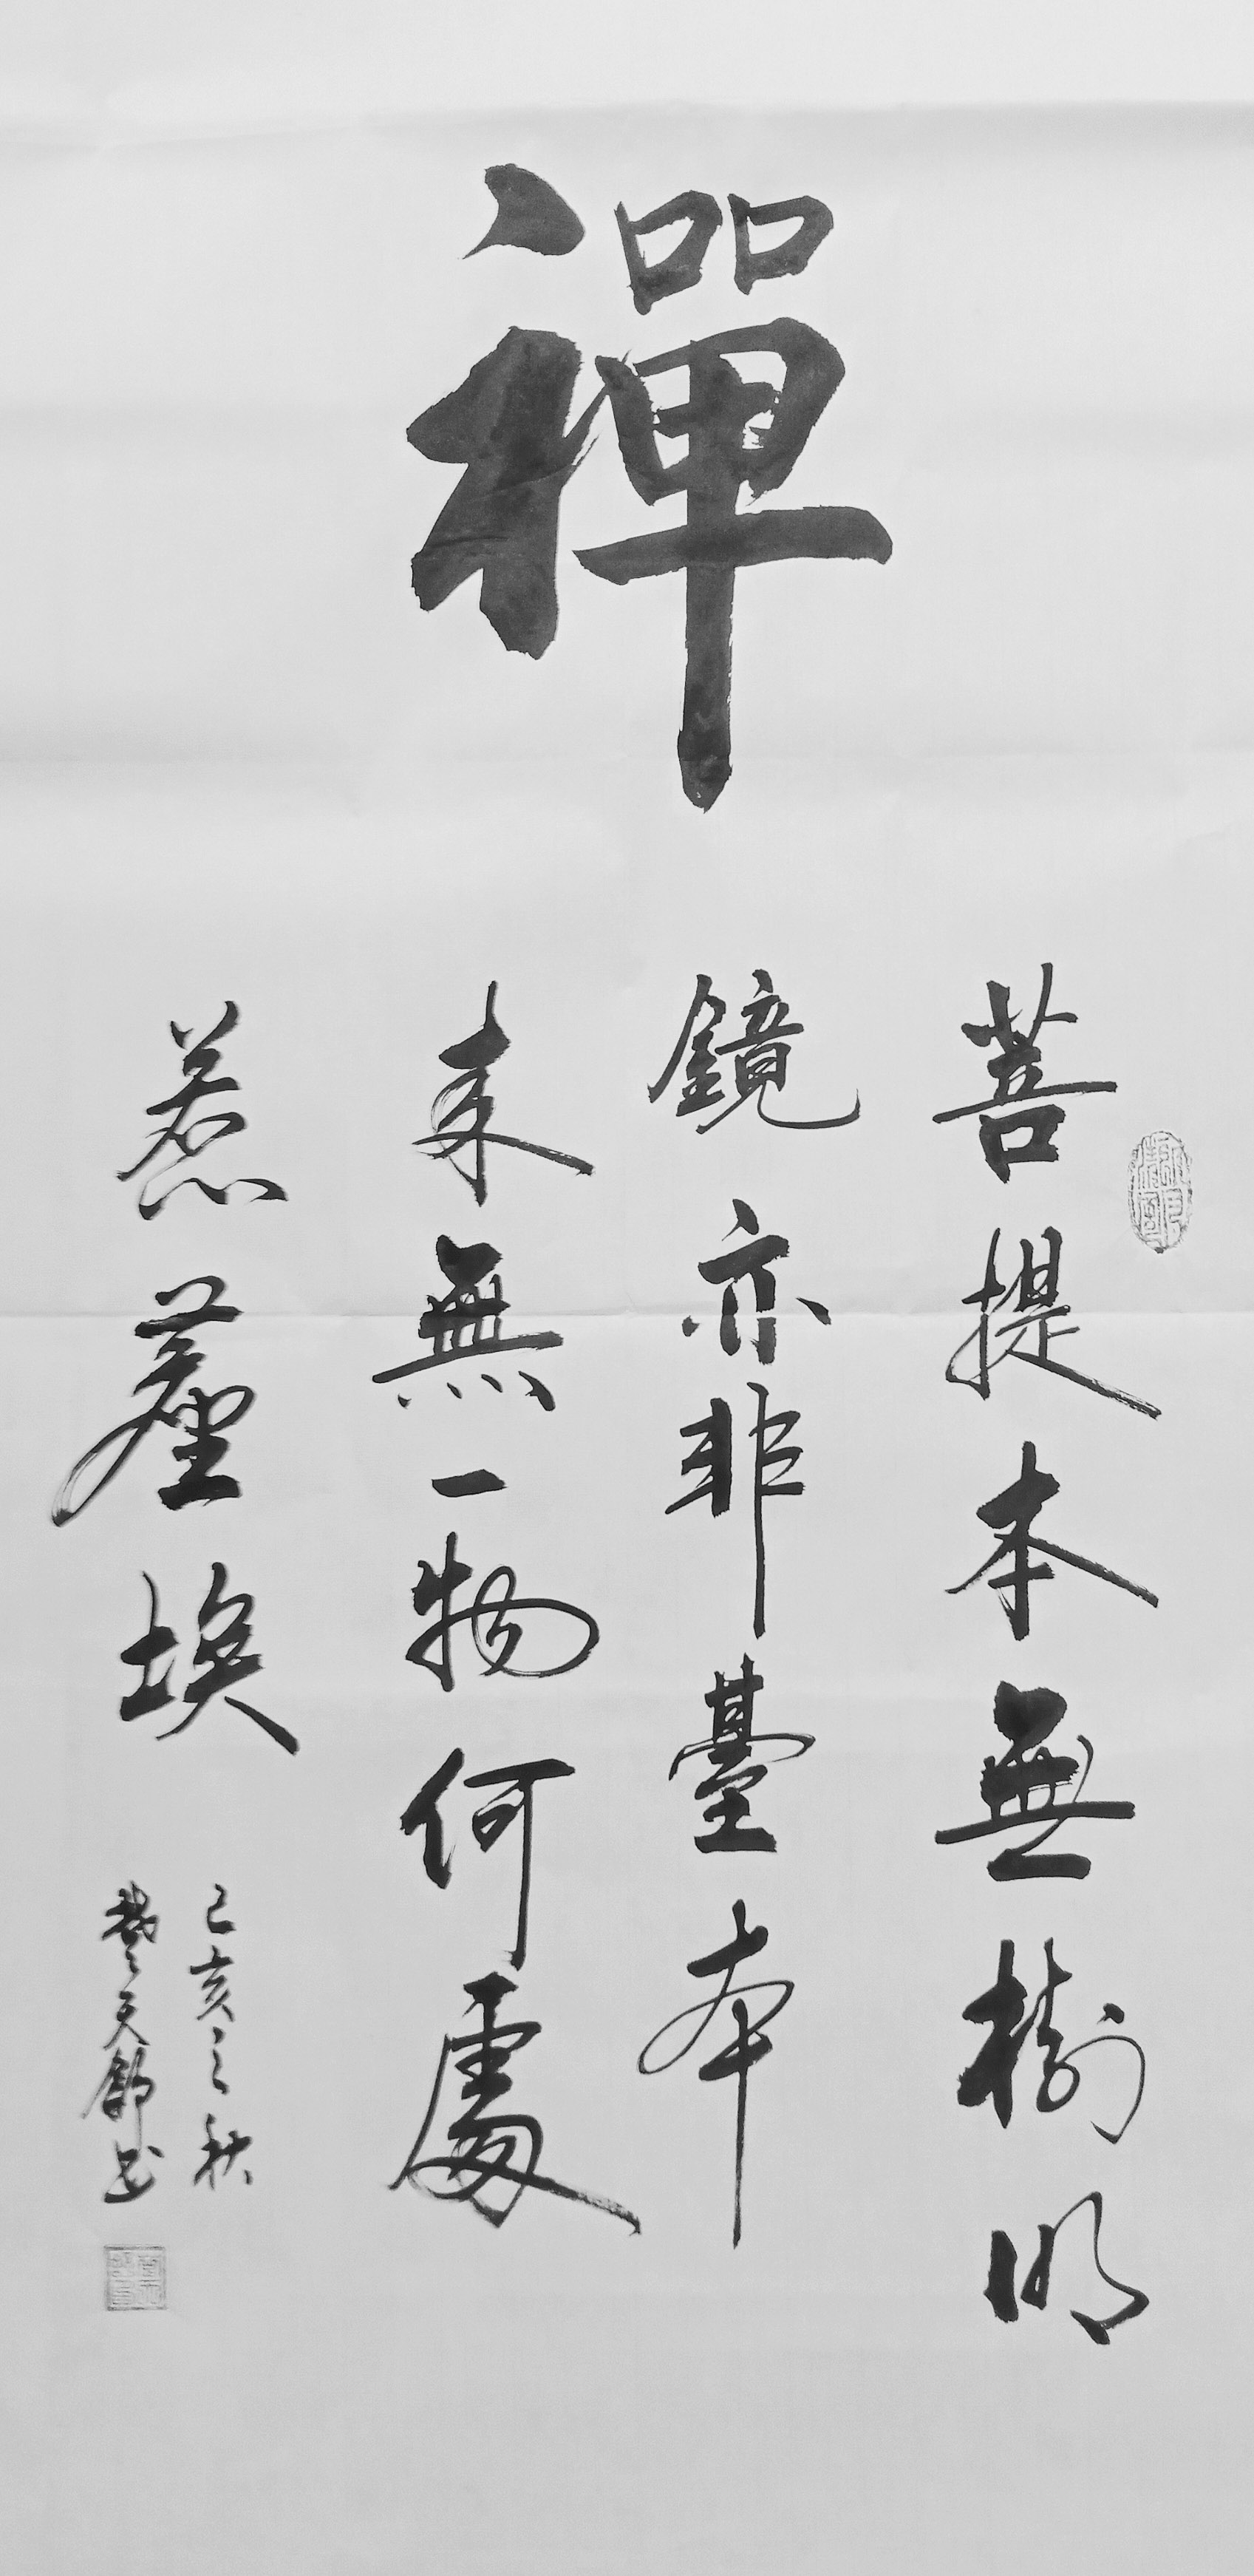 禪
菩提本無樹明
鏡亦非臺本
来無一物何處
惹塵埃
己亥之秋
楚天郎书